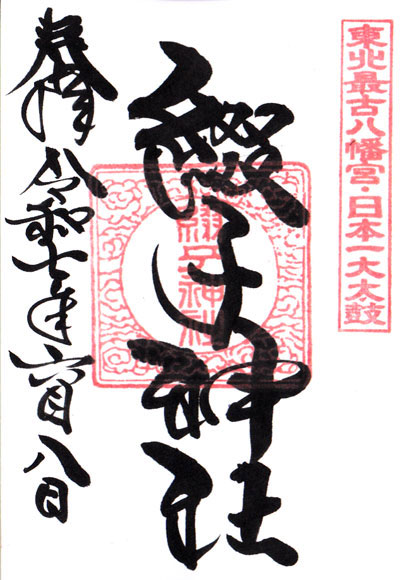 東北最古八幡宮・日本一大太鼓
綴子神社
綴子神社
奉拝 令和七年六月八日